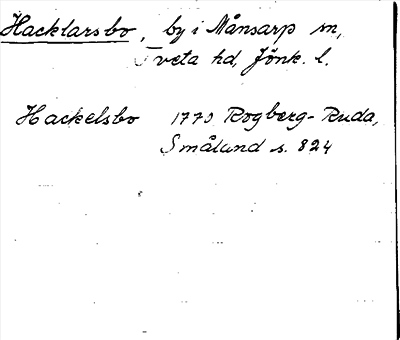 Hacklarsbo, by i Månsarp sn,
Tveta hd, Jönk. l.
Hackelsbo 1770 Rogberg-Ruda,
Småland s. 824